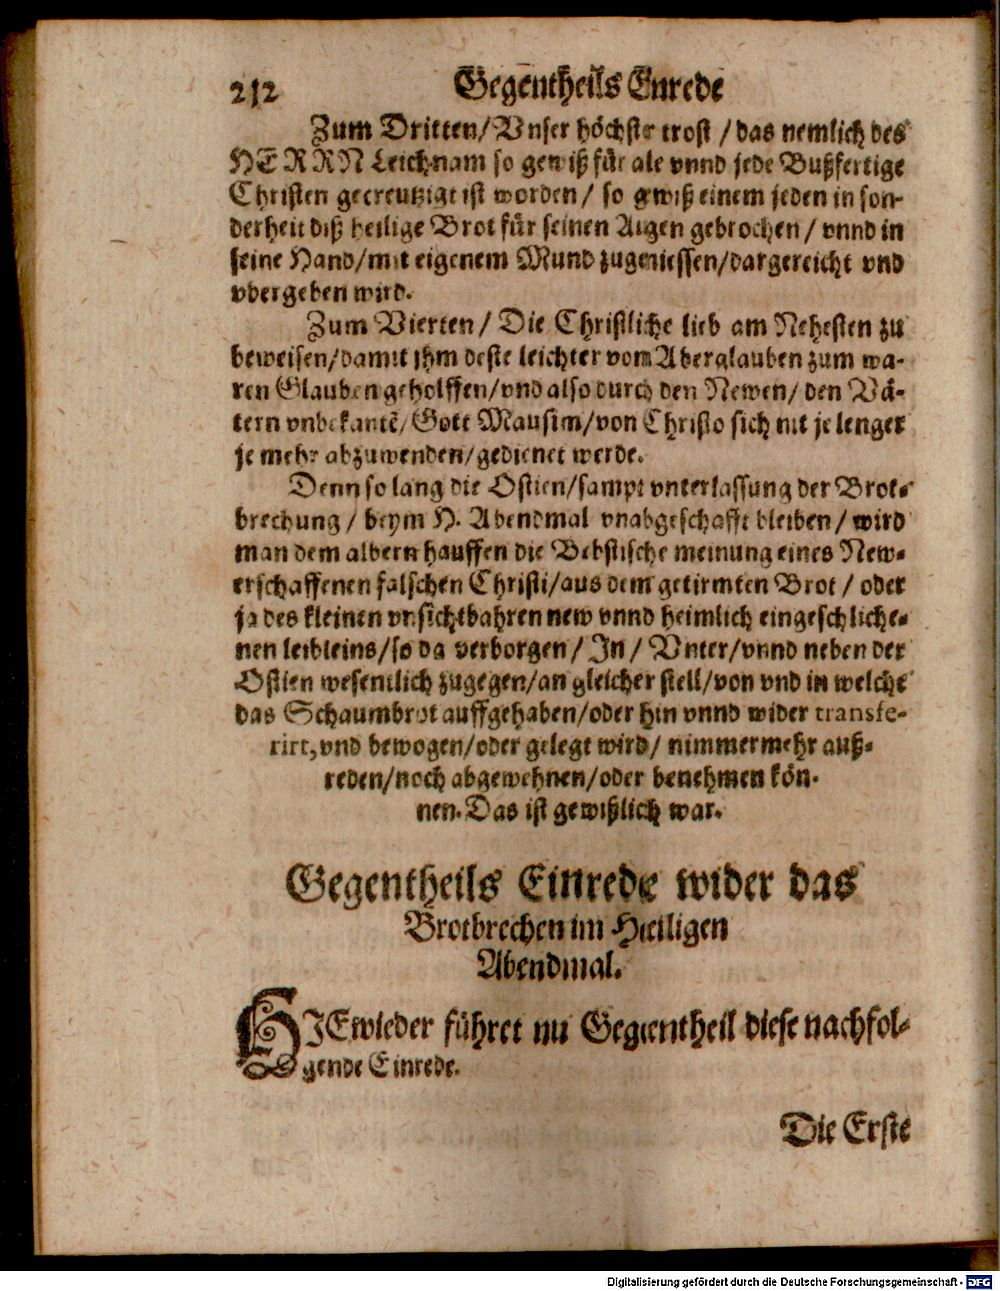 212 Gegentheils Enrede
Zum Dritten/Vnser höchster trost /das nemlich des
HERRN Leichnam so gewiß für ale vnnd jede Bußfertige
Christen gecreutzigt ist worden/ so gwiß einem jeden in son-
derheit diß heilige Brot für seinen Augen gebrochen/ vnnd in
seine Hand/mit eigenem Mund zugeniessen/dargereicht vnd
vbergeben wird.
Zum Vierten/ Die Christliche lieb am Nehesten zu
beweisen/damit jhm deste leichter vom Aberglauben zum wa-
ren Glauben geholffen/vnd also durch den Newen/ den Vä-
tern vnbekantē/Gott Mausim/von Christo sich nit je lenger
je mehr abzuwenden/gedienet werde.
Denn so lang die Ostien/sampt vnterlassung der Brot-
brechung / beym H. Abendmal vnabgeschafft bleiben/ wird
man dem albern hauffen die Bebstische meinung eines New-
erschaffenen falschen Christi/aus dem getirmten Brot / oder
ja des kleinen vnsichtbahren new vnnd heimlich eingeschliche-
nen leibleins/so da verborgen/ In/ Vnter/vnnd neben der
Ostien wesentlich zugegen/an gleicher stell/von vnd in welche
das Schaumbrot auffgehaben/oder hin vnnd wider transfe-
rirt,vnd bewogen/oder gelegt wird/ nimmermehr auß-
reden/noch abgewehnen/oder benehmen kön-
nen. Das ist gewißlich war.
Gegentheils Einrede wider das
Brotbrechen im Heiligen
Abendmal.
HIEwieder führet nu Gegentheil diese nachfol-
gende Einrede.
Die Erste
Digitalisierung gefördert durch die Deutsche Forschungsgemeinschaft - DFG